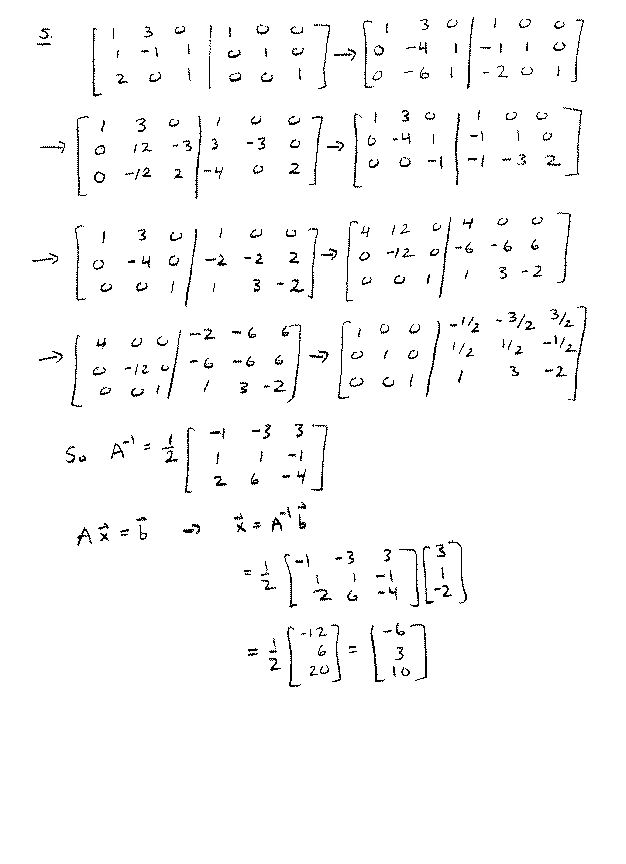 5. [ 1 3 0 | 1 0 0 ; 1 -1 1 | 0 1 0 ; 2 0 1 | 0 0 1 ] → [ 1 3 0 | 1 0 0 ; 0 -4 1 | -1 1 0 ; 0 -6 1 | -2 0 1 ]
→ [ 1 3 0 | 1 0 0 ; 0 12 -3 | 3 -3 0 ; 0 -12 2 | -4 0 2 ] → [ 1 3 0 | 1 0 0 ; 0 -4 1 | -1 1 0 ; 0 0 -1 | -1 -3 2 ]
→ [ 1 3 0 | 1 0 0 ; 0 -4 0 | -2 -2 2 ; 0 0 1 | 1 3 -2 ] → [ 4 12 0 | 4 0 0 ; 0 -12 0 | -6 -6 6 ; 0 0 1 | 1 3 -2 ]
→ [ 4 0 0 | -2 -6 6 ; 0 -12 0 | -6 -6 6 ; 0 0 1 | 1 3 -2 ] → [ 1 0 0 | -1/2 -3/2 3/2 ; 0 1 0 | 1/2 1/2 -1/2 ; 0 0 1 | 1 3 -2 ]
So A⁻¹ = 1/2 [ -1 -3 3 ; 1 1 -1 ; 2 6 -4 ]
Ax⃗ = b⃗ → x⃗ = A⁻¹b⃗
= 1/2 [ -1 -3 3 ; 1 1 -1 ; 2 6 -4 ] [ 3 ; 1 ; -2 ]
= 1/2 [ -12 ; 6 ; 20 ] = [ -6 ; 3 ; 10 ]